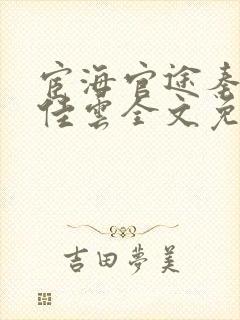 宦海官途秦
佳雲全文免
吉田夢美